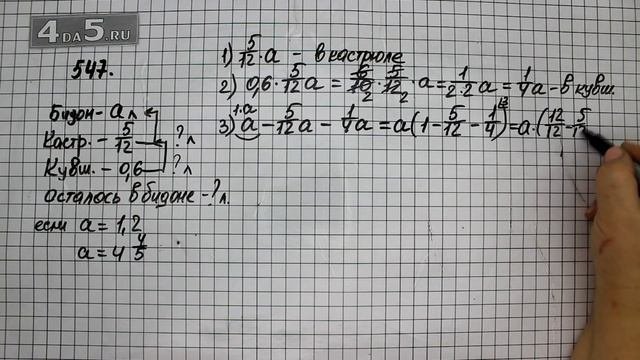 4DA5.RU
547.
Бидон - a л
Кастр. - 5/12 ? л
Кувш. - 0,6 ? л
Осталось в бидоне - ? л.
если a = 1,2
a = 4 4/5
1) 5/12 · a - в кастрюле
2) 0,6 · 5/12 a = 6/10 · 5/12 · a = 1/2·2 a = 1/4 a - в кувш.
3) a - 5/12 a - 1/4 a = a(1 - 5/12 - 1/4) = a · (12/12 - 5/12